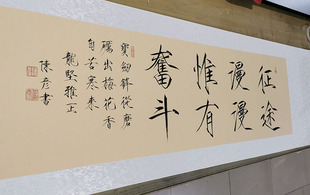 征途
漫漫
惟有
奮斗
寶劍鋒從磨
礪出梅花香
自苦寒来
龍堅雅正
陳彦書